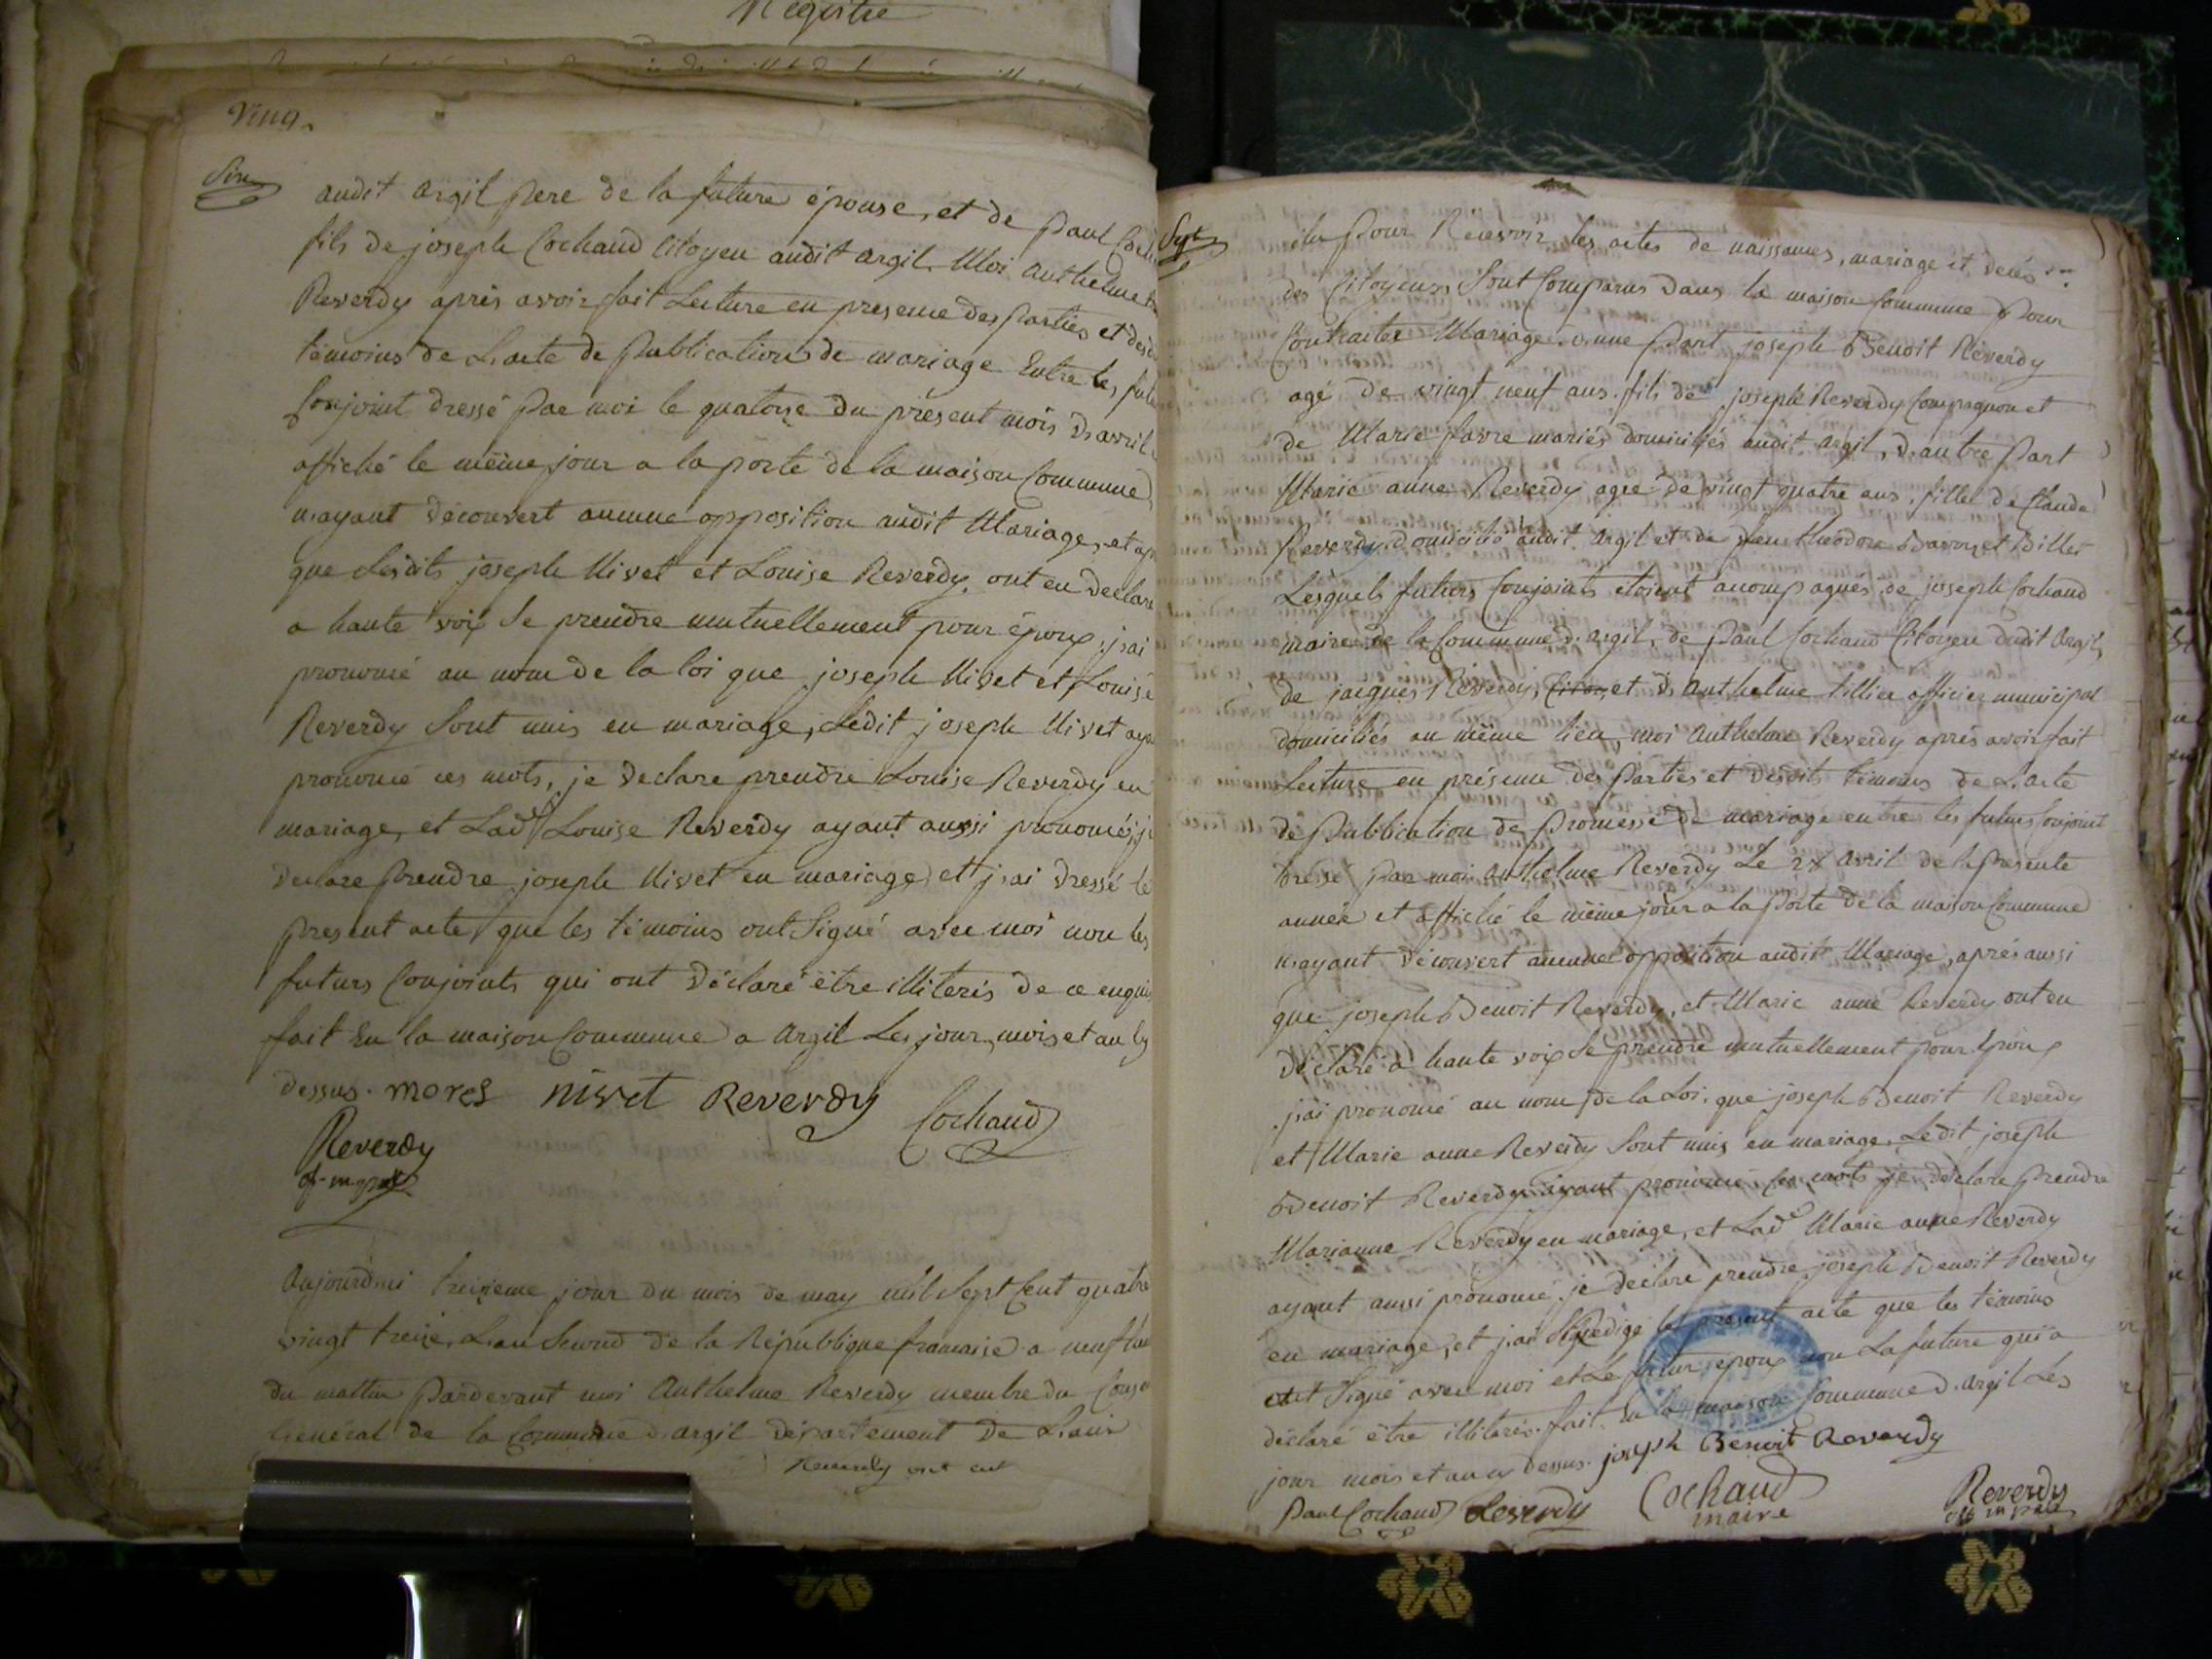 Registre
Six
audit argil pere de la future épouse, et de paul
fils de joseph Cochaud Citoyen audit argil. Moi anthelme
Reverdy après avoir fait Lecture en presence des parties et des
témoins de L'acte de publication de mariage Entre les
Conjoint dressé par moi le quatorze du présent mois d'avril
affiché le mëme jour a la porte de la maison Commune
n'ayant découvert aucune opposition audit Mariage, et
que Lesdits joseph Nivet et Louise Reverdy, ont eu declaré
a haute voix se prendre mutuellement pour époux, j'ai
prononcé au nom de la loi que joseph Nivet et Louise
Reverdy sont unis en mariage, Ledit joseph Nivet
prononcé ces mots, je declare prendre Louise Reverdy en
mariage, et Lad.e Louise Reverdy ayant aussi prononcé, je
declare prendre joseph Nivet en mariage, et j'ai dressé le
present acte que les témoins ont signé avec moi non les
futurs Conjoints qui ont déclaré ëtre illiterés de ce enquis
fait En la maison Commune a argil Les jour, mois et an
dessus. mores nivet Reverdy Cochaud
Reverdy
Aujourdhui treizieme jour du mois de may mil sept Cent quatre
vingt treize, L'an second de la République francaise a neuf
du mattin pardevant moi Anthelme Reverdy membre du
Général de la Commune d'argil département de L'ain
Reverdy ont eut
Sept
élu pour Recevoir les actes de naissances, mariage et décès
des Citoyens, sont Comparus dans la maison Commune pour
Contracter Mariage d'une part joseph Benoit Reverdy
agé de vingt neuf ans. fils de joseph Reverdy Compagnon et
de Marie favre mariés domiciliés audit argil, d'autre part
Marie anne Reverdy agée de vingt quatre ans, fille de Claude
Reverdy domicilié audit argil et de theodore
Lesquels futurs Conjoints étoient acompagnés de joseph Cochaud
maire de la Commune d'argil, de paul Cochaud Citoyen dudit argil,
de jacques Reverdy, et d'anthelme tillier officier municipal
domiciliés au mëme lieu, moi anthelme Reverdy après avoir fait
Lecture en présence des parties et desdits témoins de L'acte
de publication de promesse de mariage entre les futurs Conjoint
dressé par moi anthelme Reverdy Le avril de la presente
année et affiché le mëme jour a la porte de la maison Commune
n'ayant découvert aucune opposition audit Mariage, après aussi
que joseph Benoit Reverdy, et Marie anne Reverdy ont eu
déclaré a haute voix se prendre mutuellement pour Epoux
j'ai prononcé au nom de la Loi. que joseph Benoit Reverdy
et Marie anne Reverdy sont unis en mariage, Ledit joseph
Benoit Reverdy ayant prononcé ces mots je déclare prendre
Marianne Reverdy en mariage, et Lad.e Marie anne Reverdy
ayant aussi prononcé. je déclare prendre joseph Benoit Reverdy
en mariage, et j'ai Redigé le present acte que les témoins
ont signé avec moi et Le futur époux non La future qui a
déclaré ëtre illiterés. fait En la maison Commune d'argil Les
jour mois et an cy dessus. joseph Benoit Reverdy
Paul Cochaud Reverdy Cochaud Reverdy
maire